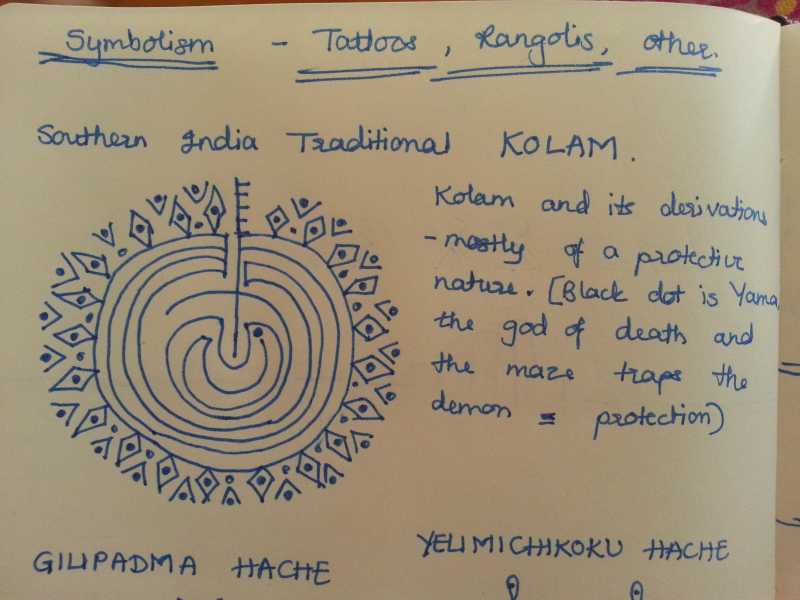 Symbolism - Tattoos, Rangolis, other.
Southern India Traditional KOLAM.
Kolam and its derivations
- mostly of a protective
nature. [Black dot is Yama,
the god of death and
the maze traps the
demon = protection)
GILIPADMA HACHE
YELIMICHIKOKU HACHE